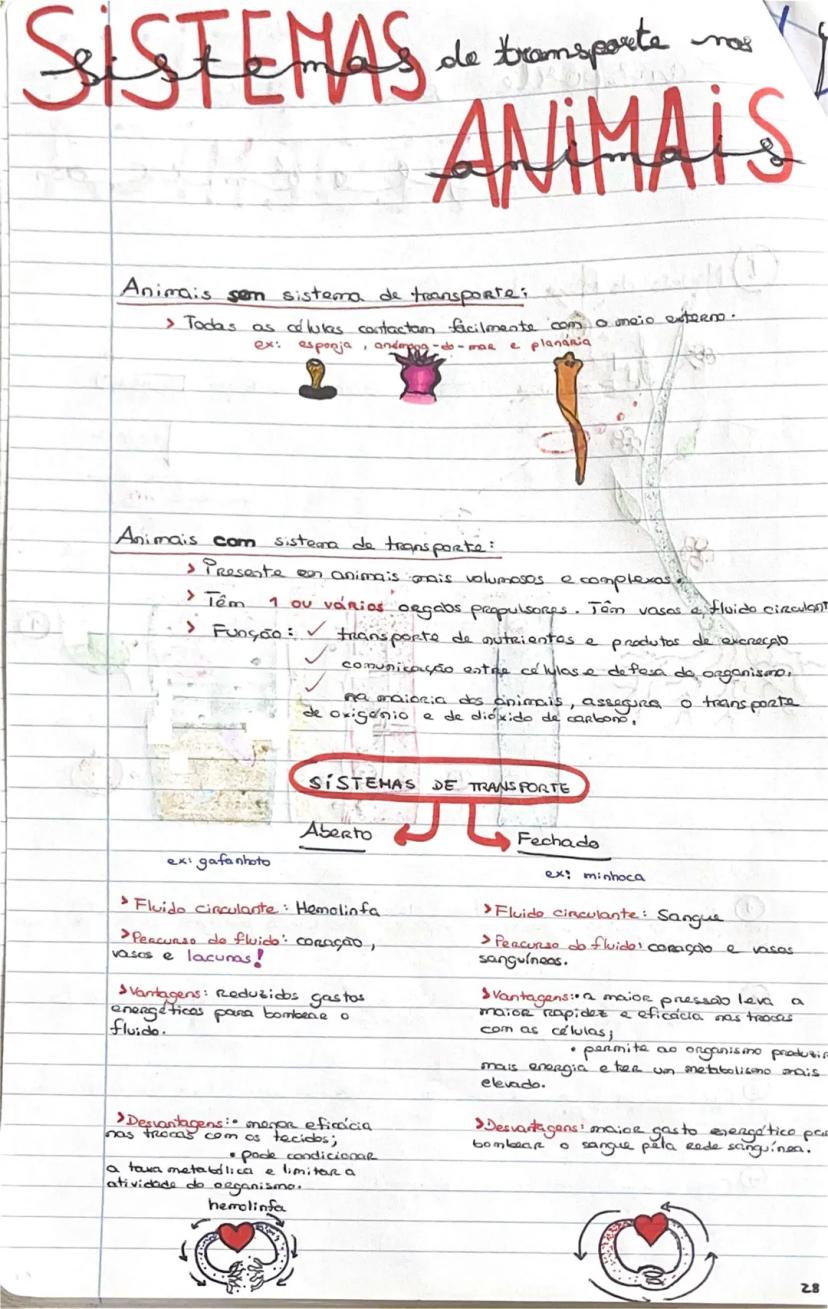 SiSTEMAS
sistemas de transporte nos
ANiMAiS
animais
Animais sem sistema de transporte:
> Todas as células contactam facilmente com o meio externo.
ex: esponja, anémona-do-mar e planária
Animais com sistema de transporte:
> Presente em animais mais volumosos e complexos.
> Têm 1 ou vários orgãos propulsores. Têm vasos e fluido circulant
> Função: ✓ transporte de nutrientes e produtos de excreção
✓ comunicação entre células e defesa do organismo.
✓ na maioria dos animais, assegura o transporte
de oxigénio e de dióxido de carbono.
SiSTEMAS DE TRANSPORTE
Aberto
ex: gafanhoto
> Fluido circulante: Hemolinfa
> Percurso do fluido: coração,
vasos e lacunas!
> Vantagens: Reduzidos gastos
energéticos para bombear o
fluido.
> Desvantagens: • menor eficácia
nas trocas com os tecidos;
• pode condicionar
a taxa metabólica e limitar a
atividade do organismo.
hemolinfa
Fechado
ex: minhoca
> Fluido circulante: Sangue
> Percurso do fluido: coração e vasos
sanguíneos.
> Vantagens: • a maior pressão leva a
maior rapidez e eficácia nas trocas
com as células;
• permite ao organismo produzir
mais energia e ter um metabolismo mais
elevado.
> Desvantagens: maior gasto energético par
bombear o sangue pela rede sanguínea.
28